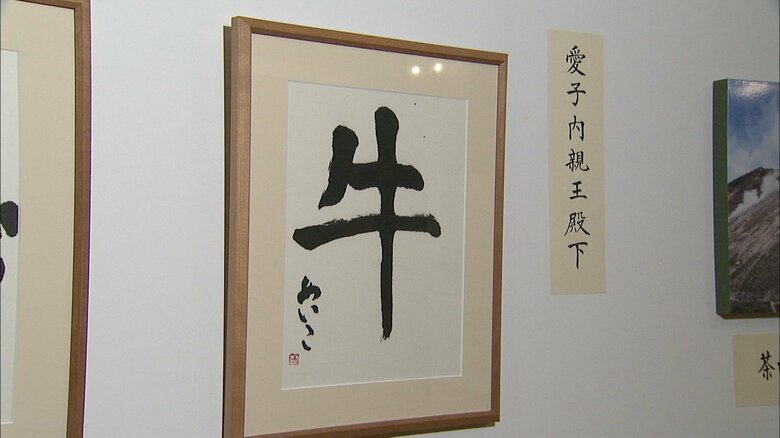 牛
あいこ
愛子内親王殿下
茶